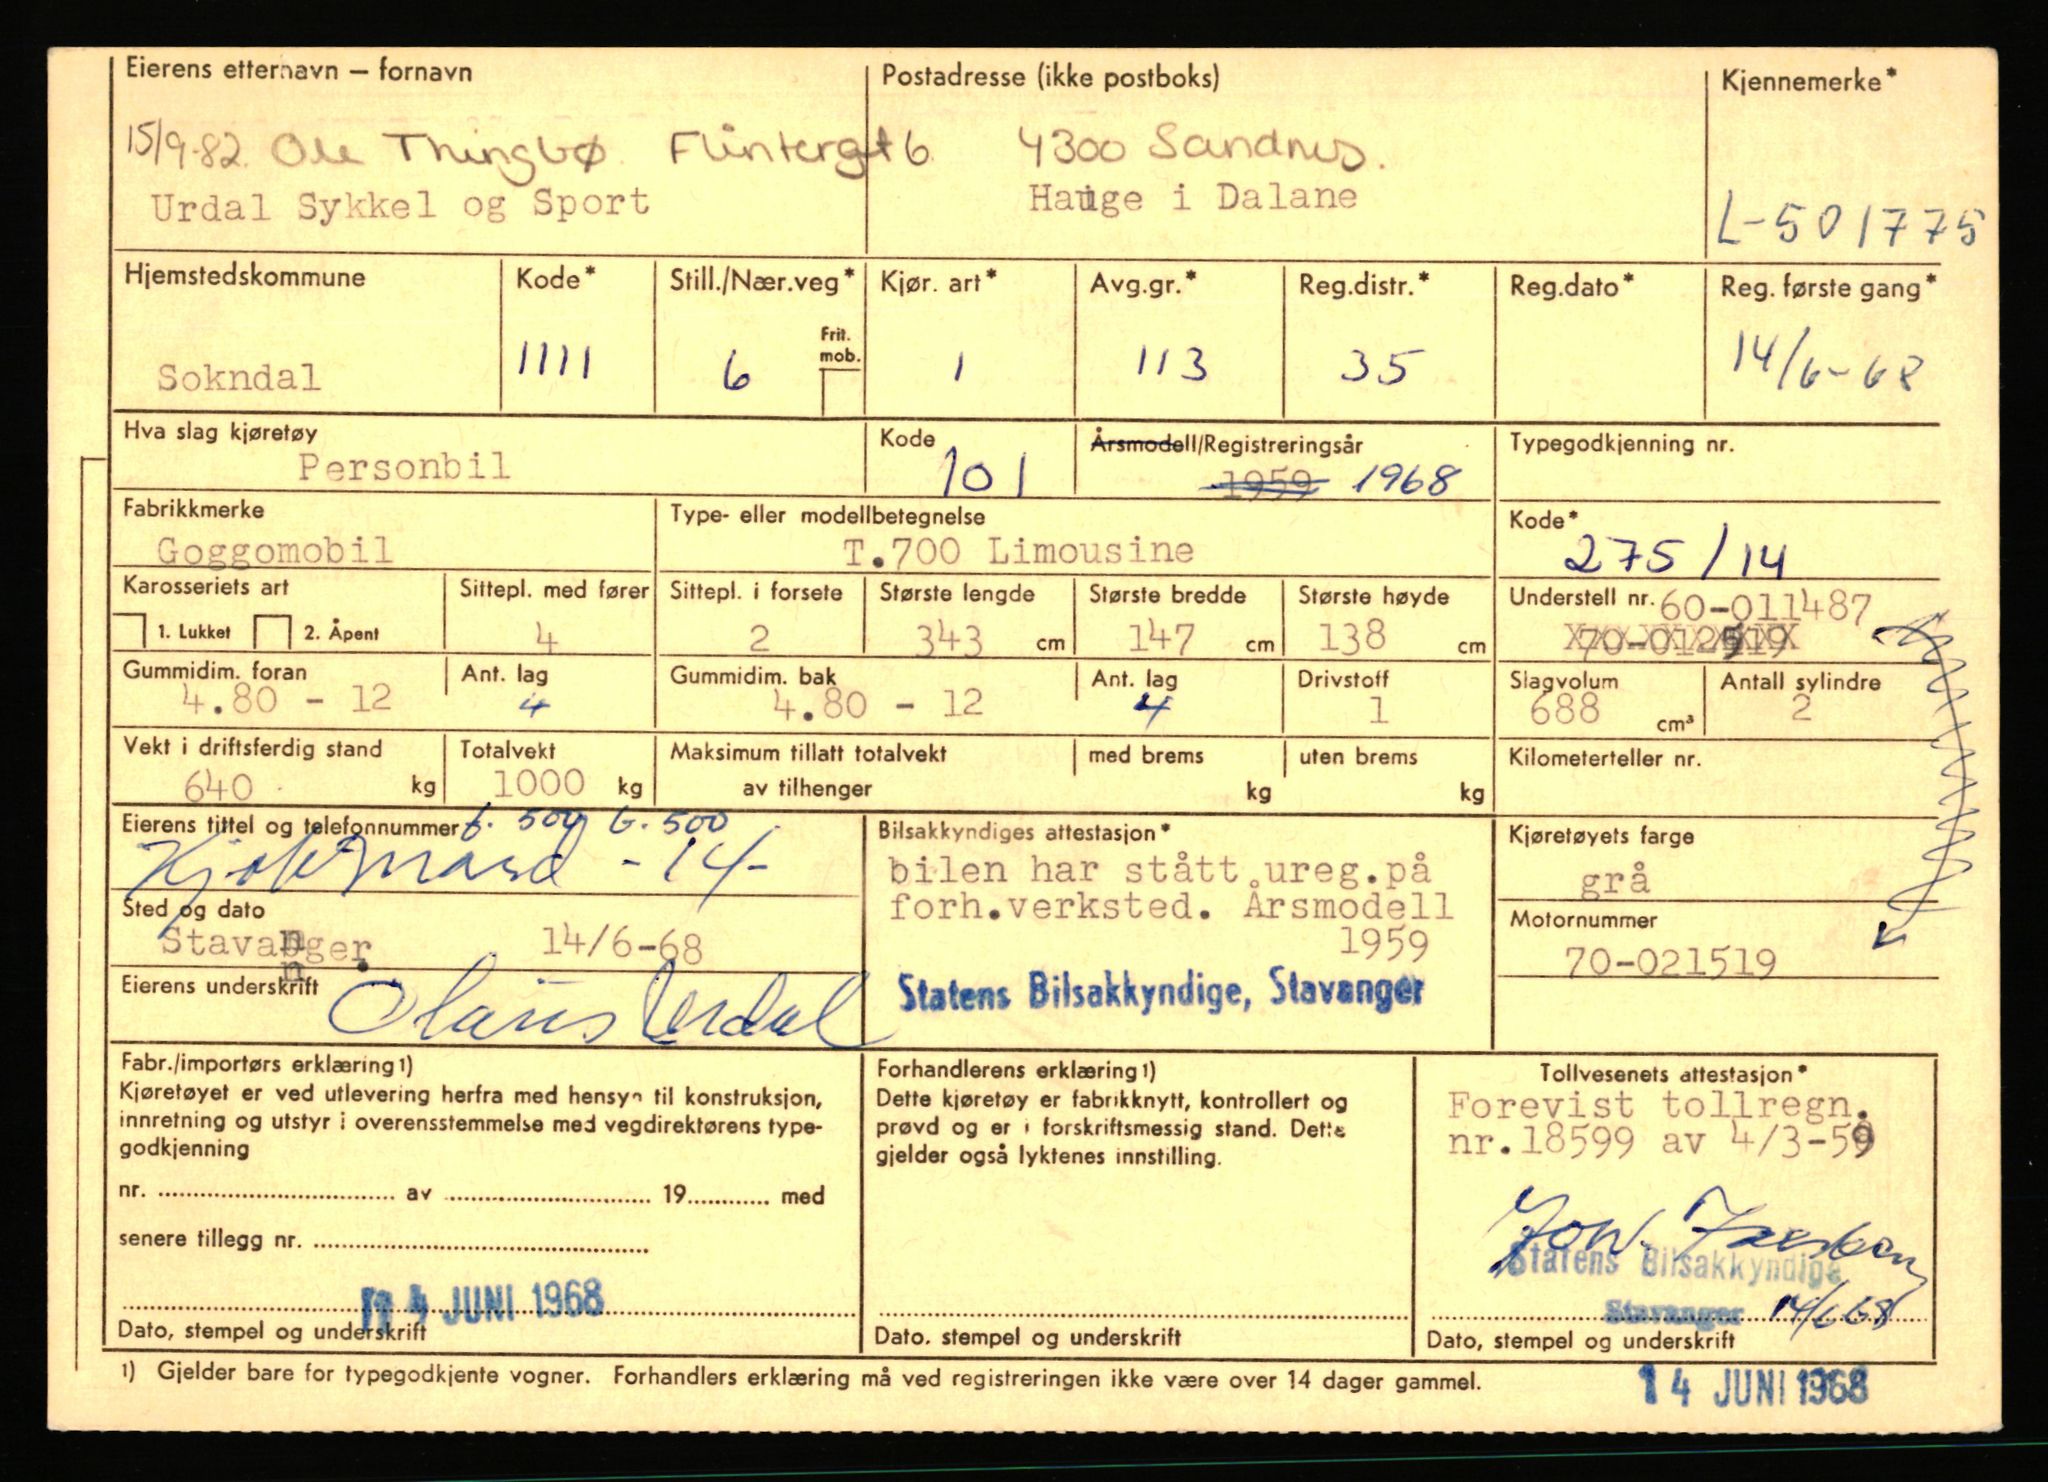 Eierens etternavn – fornavn
Postadresse (ikke postboks)
Kjennemerke*
15/9-82. Ole Thingbø. Flintergt 6 4300 Sandnes.
Urdal Sykkel og Sport
Hauge i Dalane
L-501775
Hjemstedskommune
Kode*
Still./Nær.veg*
Kjør. art*
Avg.gr.*
Reg.distr.*
Reg.dato*
Reg. første gang*
Frit.
mob.
Sokndal
1111
6
1
113
35
14/6-68
Hva slag kjøretøy
Kode
Årsmodell/Registreringsår
Typegodkjenning nr.
Personbil
101
1959 1968
Fabrikkmerke
Type- eller modellbetegnelse
Kode*
Goggomobil
T.700 Limousine
275/14
Karosseriets art
Sittepl. med fører
Sittepl. i forsete
Største lengde
Største bredde
Største høyde
Understell nr. 60-011487
1. Lukket
2. Åpent
4
2
343 cm
147 cm
138 cm
70-012519
Gummidim. foran
Ant. lag
Gummidim. bak
Ant. lag
Drivstoff
Slagvolum
Antall sylindre
4.80 - 12
4
4.80 - 12
4
1
688 cm³
2
Vekt i driftsferdig stand
Totalvekt
Maksimum tillatt totalvekt
med brems
uten brems
Kilometerteller nr.
640 kg
1000 kg
av tilhenger
kg
kg
Eierens tittel og telefonnummer
Bilsakkyndiges attestasjon*
Kjøretøyets farge
f. 500 b. 500
Kjøbmand -14-
bilen har stått ureg.på
forh.verksted. Årsmodell
1959
grå
Sted og dato
Motornummer
Stavanger. 14/6-68
70-021519
Statens Bilsakkyndige, Stavanger
Eierens underskrift
Olaus Urdal
Fabr./importørs erklæring1)
Kjøretøyet er ved utlevering herfra med hensyn til konstruksjon,
innretning og utstyr i overensstemmelse med vegdirektørens type-
godkjenning
nr. av 19 med
senere tillegg nr.
14 JUNI 1968
Dato, stempel og underskrift
Forhandlerens erklæring1)
Dette kjøretøy er fabrikknytt, kontrollert og
prøvd og er i forskriftsmessig stand. Dette
gjelder også lyktenes innstilling.
Dato. stempel og underskrift
Tollvesenets attestasjon*
Forevist tollregn.
nr.18599 av 4/3-59
Statens Bilsakkyndige
Stavanger 14/6 68
Dato, stempel og underskrift
1) Gjelder bare for typegodkjente vogner. Forhandlers erklæring må ved registreringen ikke være over 14 dager gammel.
14 JUNI 1968